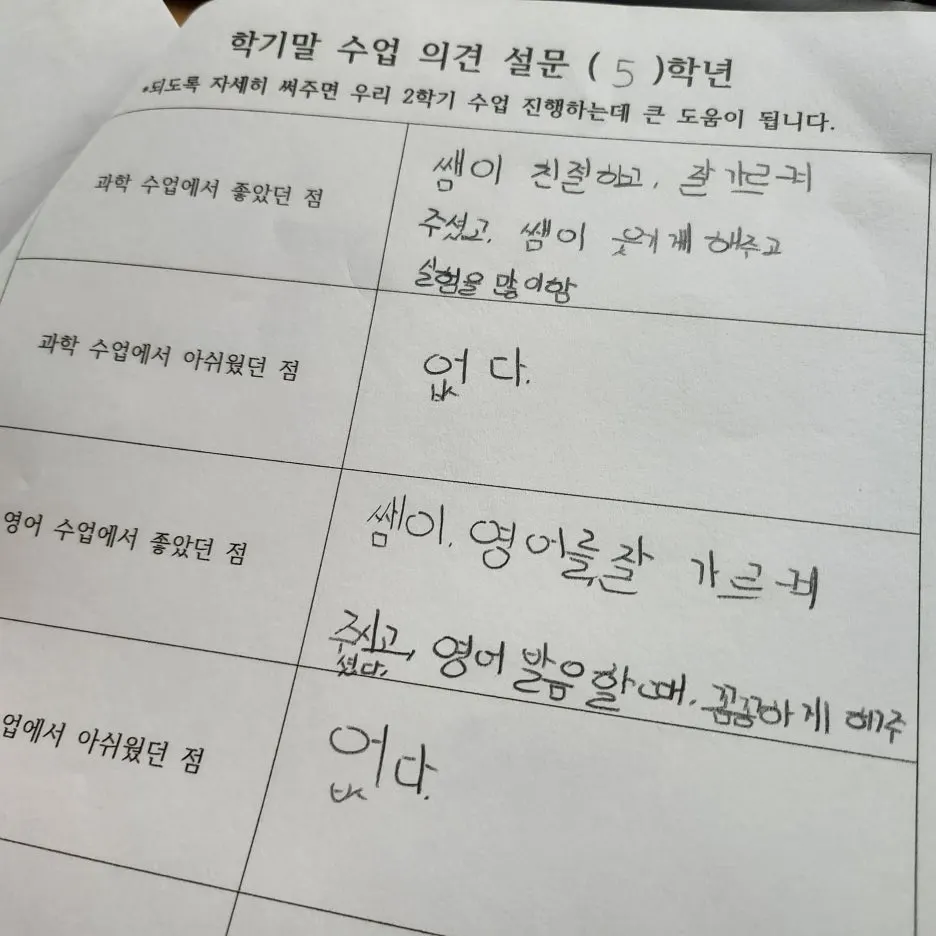 학기말 수업 의견 설문 ( 5 )학년
*되도록 자세히 써주면 우리 2학기 수업 진행하는데 큰 도움이 됩니다.
과학 수업에서 좋았던 점
쌤이 친절하고, 잘 가르켜
주셨고, 쌤이 웃기게 해주고
실험을 많이함
과학 수업에서 아쉬웠던 점
없다.
영어 수업에서 좋았던 점
쌤이, 영어를 잘 가르켜
주시고, 영어 발음 할때, 꼼꼼하게 해주
셨다.
업에서 아쉬웠던 점
없다.